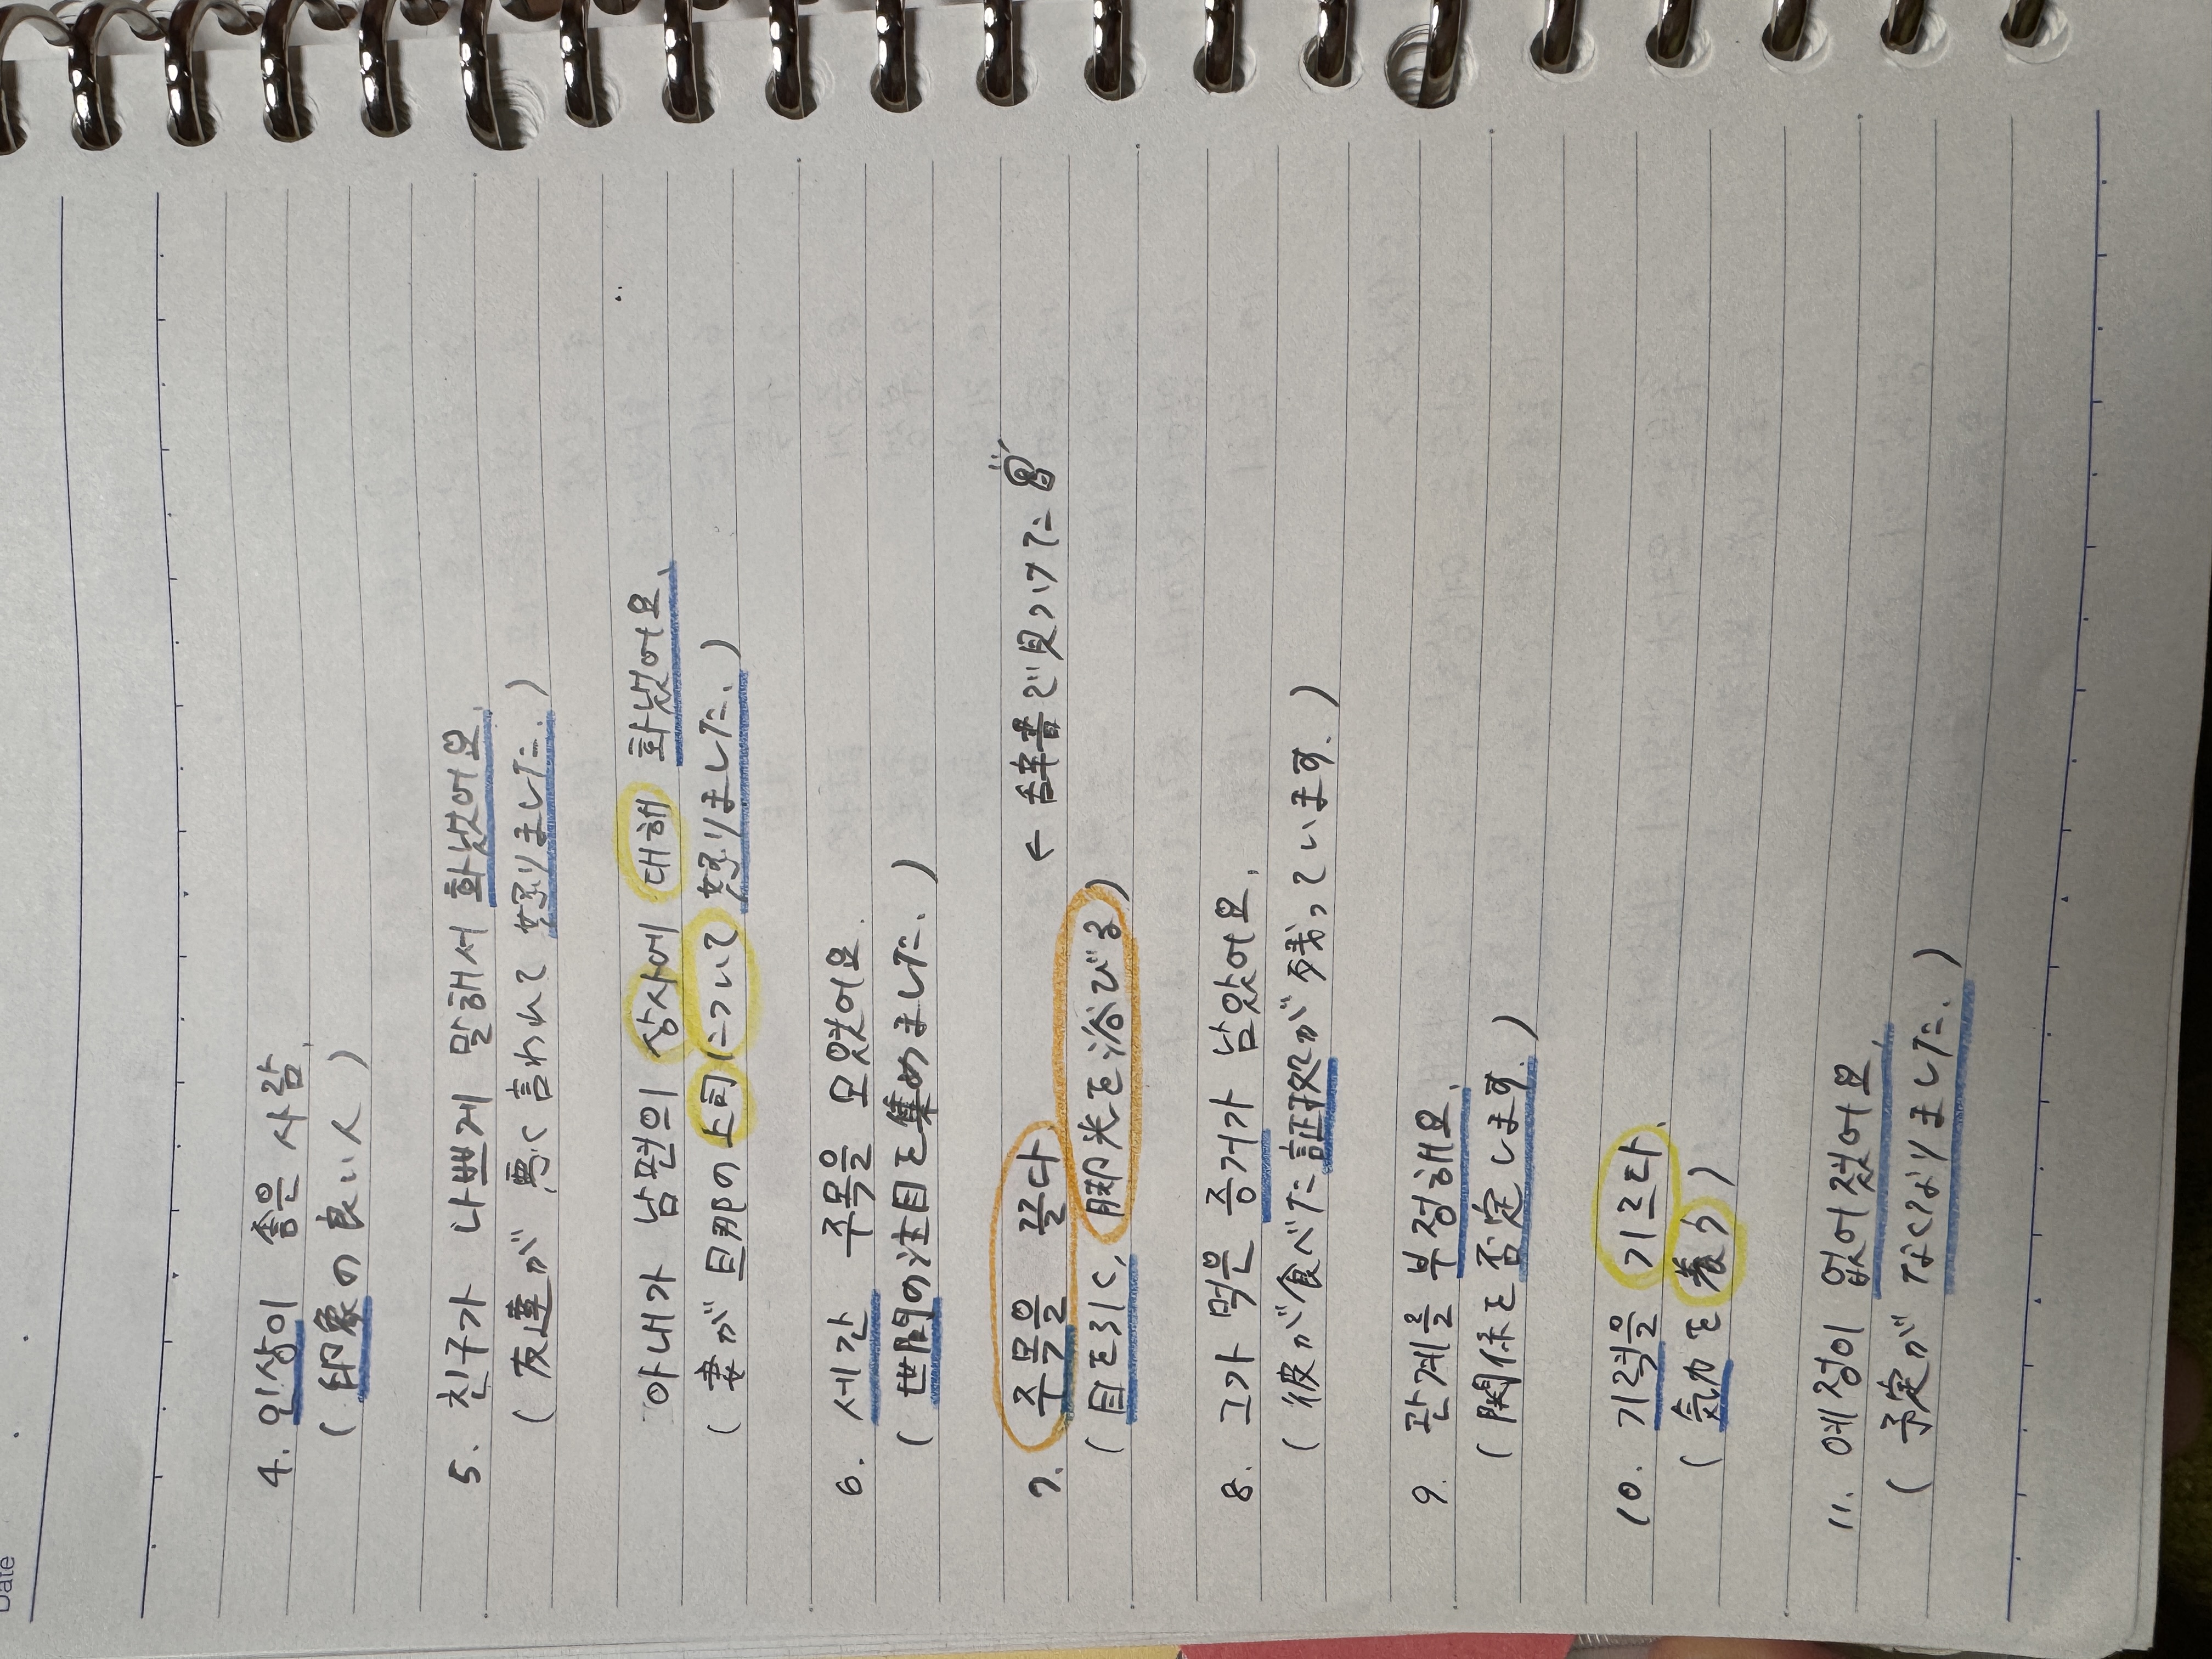 Date
4. 인상이 좋은 사람.
(印象の良い人)
5. 친구가 나쁘게 말해서 화났어요.
(友達が悪く言われて怒りました。)
아내가 남편의 상사에 대해 화났어요.
(妻が旦那の上司について怒りました。)
6. 세간 주목을 모았어요.
(世間の注目を集めました。)
7. 주목을 끌다 ← 辞書で見つけた
(目を引く, 脚光を浴びる)
8. 그가 먹은 증거가 남았어요.
(彼が食べた証拠が残っています。)
9. 관계를 부정해요.
(関係を否定します。)
10. 기력을 기르다.
(気力を養う)
11. 예정이 없어졌어요.
(予定がなくなりました。)